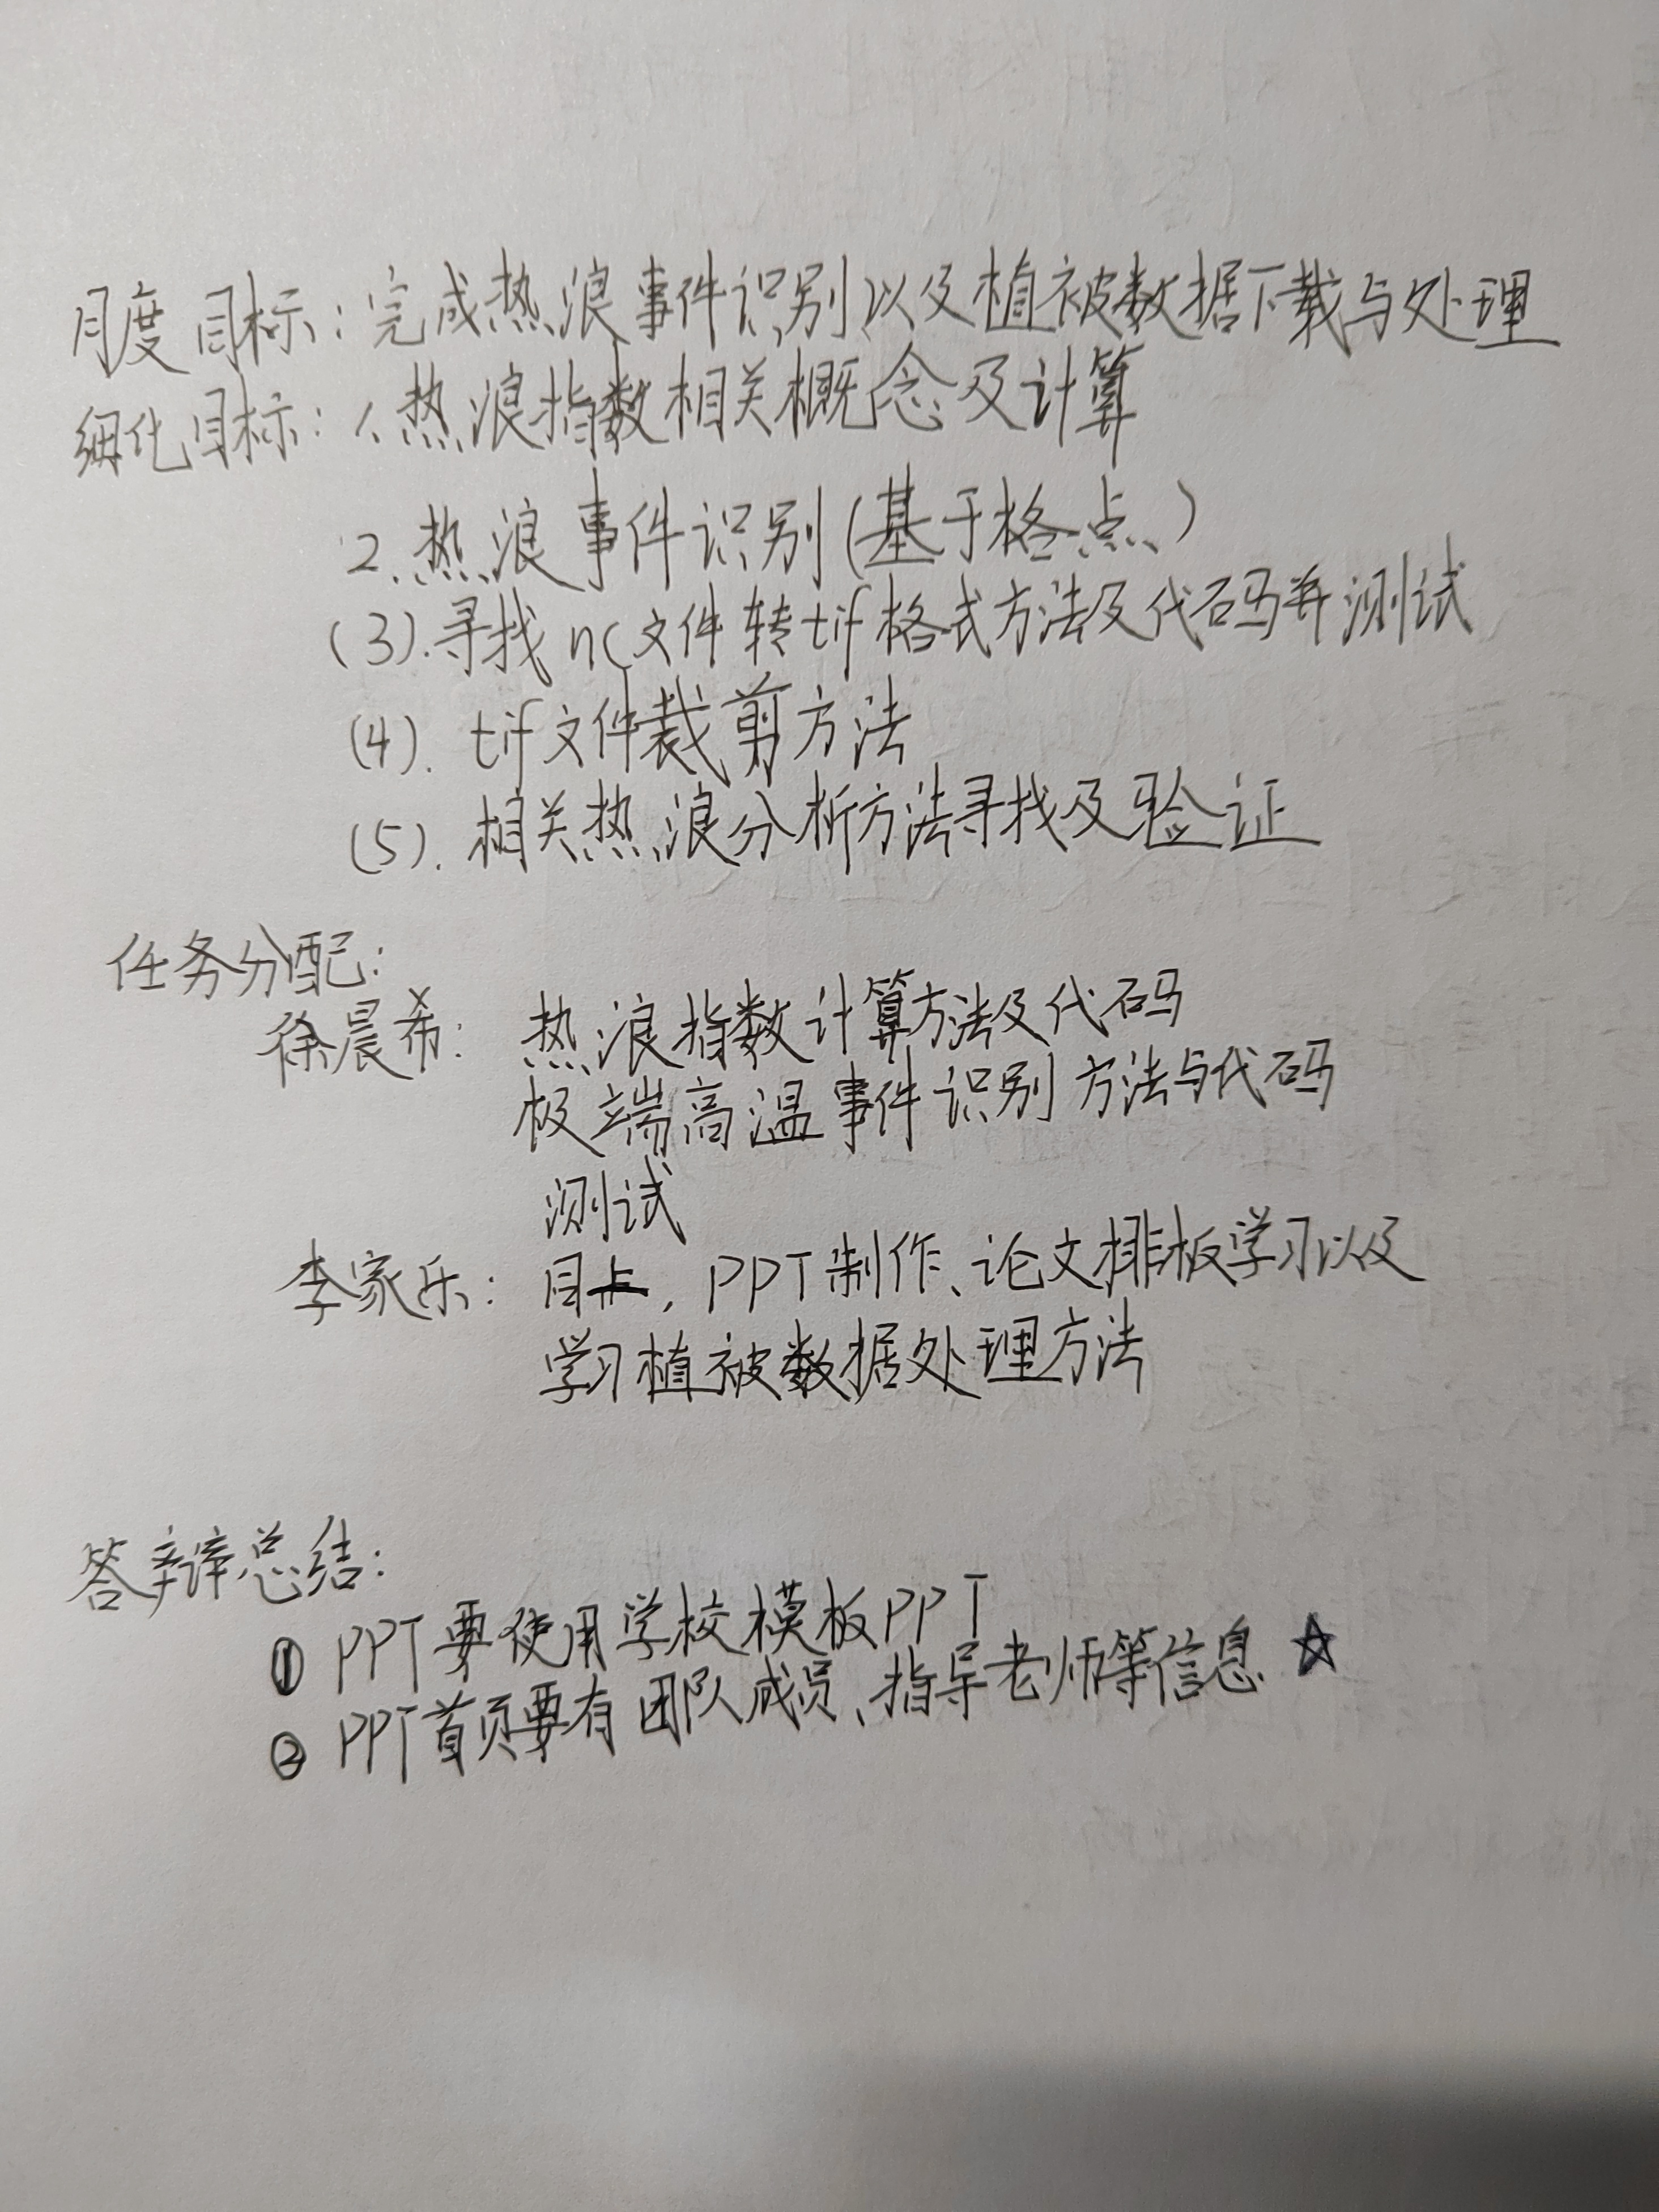 月度目标：完成热浪事件识别以及植被数据下载与处理
细化目标：1、热浪指数相关概念及计算
2.热浪事件识别(基于格点)
(3).寻找nc文件转tif格式方法及代码并测试
(4). tif文件裁剪方法
(5). 相关热浪分析方法寻找及验证
任务分配：
徐晨希： 热浪指数计算方法及代码
极端高温事件识别方法与代码
测试
李家乐： PPT制作、论文排板学习以及
学习植被数据处理方法
答辩总结：
① PPT要使用学校模板PPT
② PPT首页要有团队成员、指导老师等信息 ☆